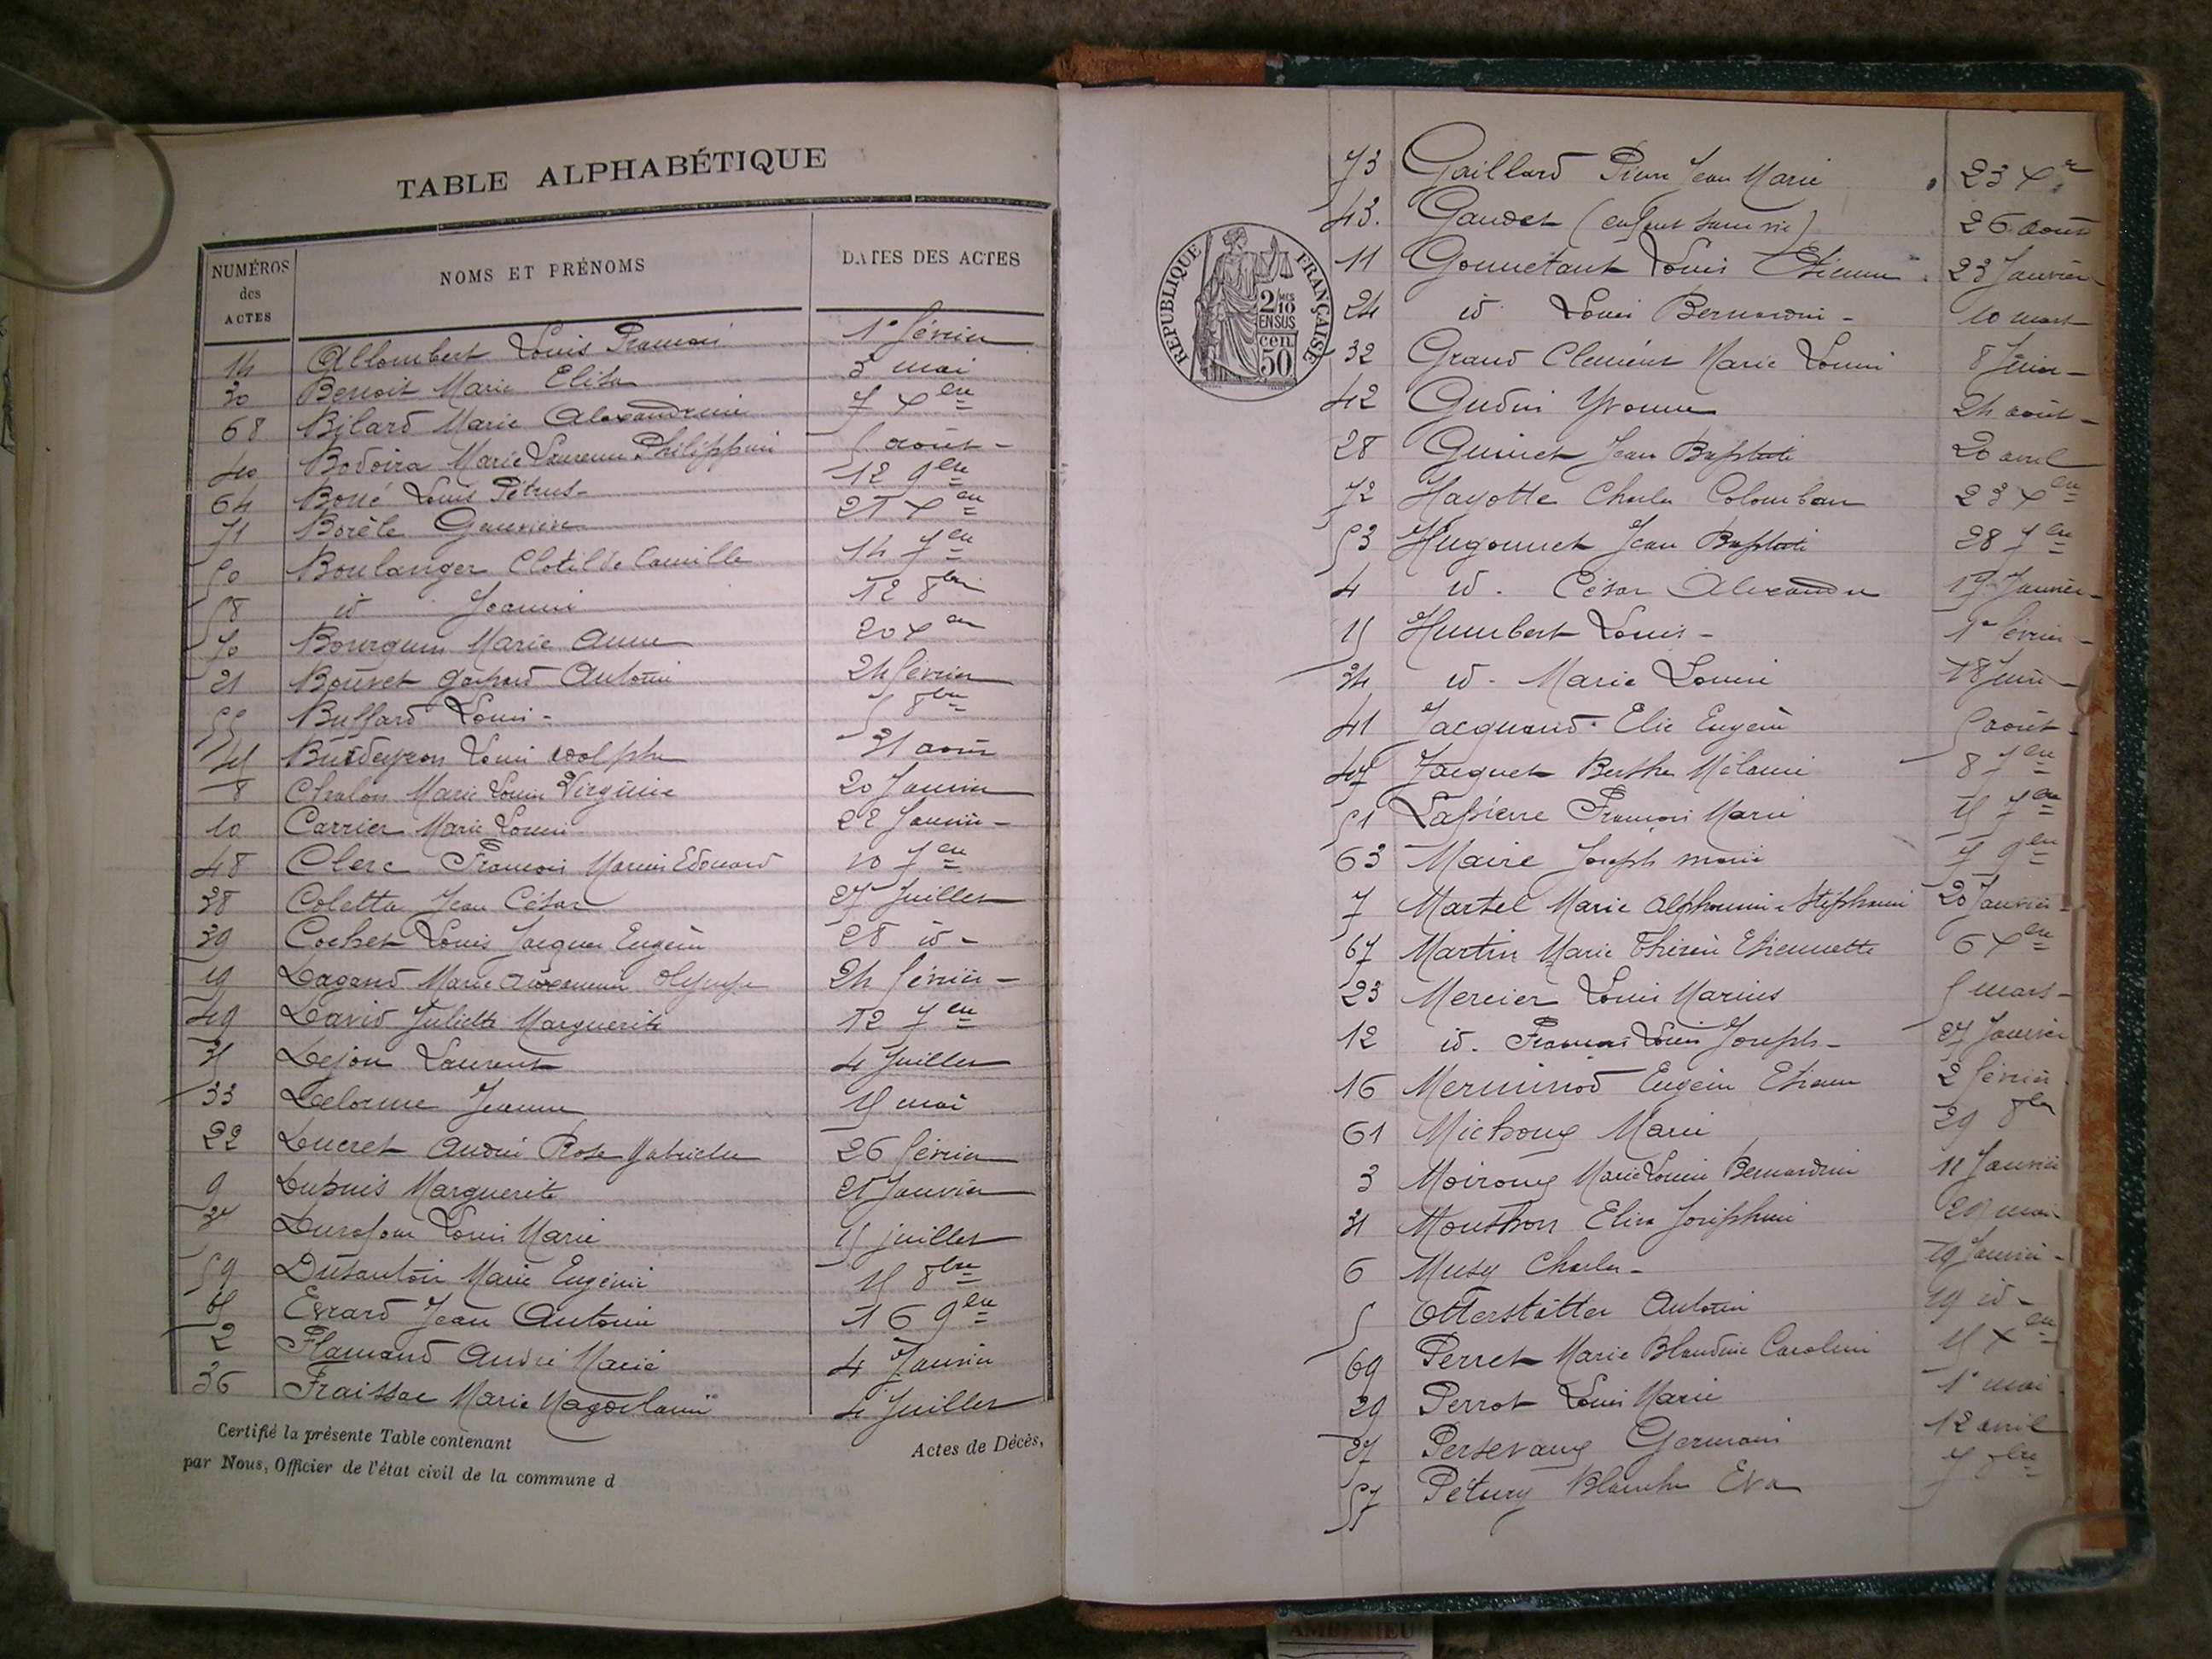 TABLE ALPHABÉTIQUE
NUMÉROS des ACTES
NOMS ET PRÉNOMS
DATES DES ACTES
14 Allombert Louis François 1er février
30 Benoit Marie Elisa 3 mai
68 Bilard Marie Alexandrine 7 Xbre
40 Bodoira Marie Laurence Philippine 5 août
64 Borré Louis Pétrus 12 9bre
71 Borèle Geneviève 21 Xbre
50 Boulanger Clotilde Camille 14 7bre
58 id Jeanne 12 8bre
70 Bourguin Marie Anne 20 Xbre
21 Bouvet Gaspard Antonin 24 février
55 Buffard Louis 5 8bre
Burdeyron Louis Adolphe 31 août
8 Chalon Marie Louise Virginie 20 Janvier
10 Carrier Marie Louise 22 Janvier
48 Clerc François Marius Edouard 10 7bre
38 Coletta Jean César 27 Juillet
39 Cochet Louis Jacques Eugène 28 id
19 Dagand Marie Olympe 24 février
49 David Juliette Marguerite 12 7bre
35 Dejon Laurent 4 Juillet
33 Delorme Jeanne 15 mai
22 Ducret André Rose Gabrielle 26 février
9 Dupuis Marguerite 21 Janvier
37 Durafour Louis Marie 15 juillet
59 Dusautoir Marie Eugénie 15 8bre
65 Evrard Jean Antoine 16 9bre
2 Flamand André Marie 4 Janvier
36 Fraissac Marie Magdelaine 4 Juillet
Certifié la présente Table contenant Actes de Décès,
par Nous, Officier de l'état civil de la commune d
RÉPUBLIQUE FRANÇAISE
2/10 MES
EN SUS
50 cen
73 Gaillard Pierre Jean Marie 23 Xbre
43. Gaudet (enfant sans vie) 26 août
11 Gonnetant Louis Etienne 23 Janvier
24 id Louis Bernardin 10 mars
32 Grand Clément Marie Louis 8 Juin
42 Gudin Yvonne 24 août
28 Guinet Jean Baptiste 20 avril
72 Hayotte Charles Colomban 23 Xbre
53 Hugonnet Jean Baptiste 28 7bre
4 id. César Alexandre 17 Janvier
15 Humbert Louis 1er février
34 id. Marie Louise 18 Juin
41 Jacquand Elie Eugène 5 août
47 Jacquet Berthe Mélanie 8 7bre
51 Lapierre François Marie 15 7bre
63 Maire Joseph marie 7 9bre
7 Martel Marie Alphonsine Stéphanie 20 Janvier
67 Martin Marie Thérèse Etiennette 6 Xbre
23 Mercier Louis Marius 5 mars
12 id. François Louis Joseph 27 Janvier
16 Merminod Eugène Etienne 2 février
61 Michoux Marie 29 8bre
3 Moiroux Marie Louise Bernardine 11 Janvier
31 Mouthon Elisa Joséphine 29 mai
6 Musy Charles 19 Janvier
5 Otterstätter Antonin 19 id
69 Perret Marie Blandine Caroline 15 Xbre
29 Perrot Louis Marie 1er mai
27 Persevaux Germain 12 avril
57 Pétury Blanche Eva 7 8bre
AMBERIEU